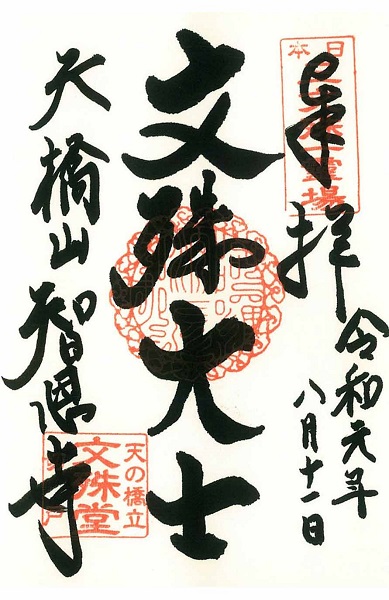 奉拝
令和元年
八月十一日
文殊大士
天橋山智恩寺
日本
霊場
天の橋立
文殊堂